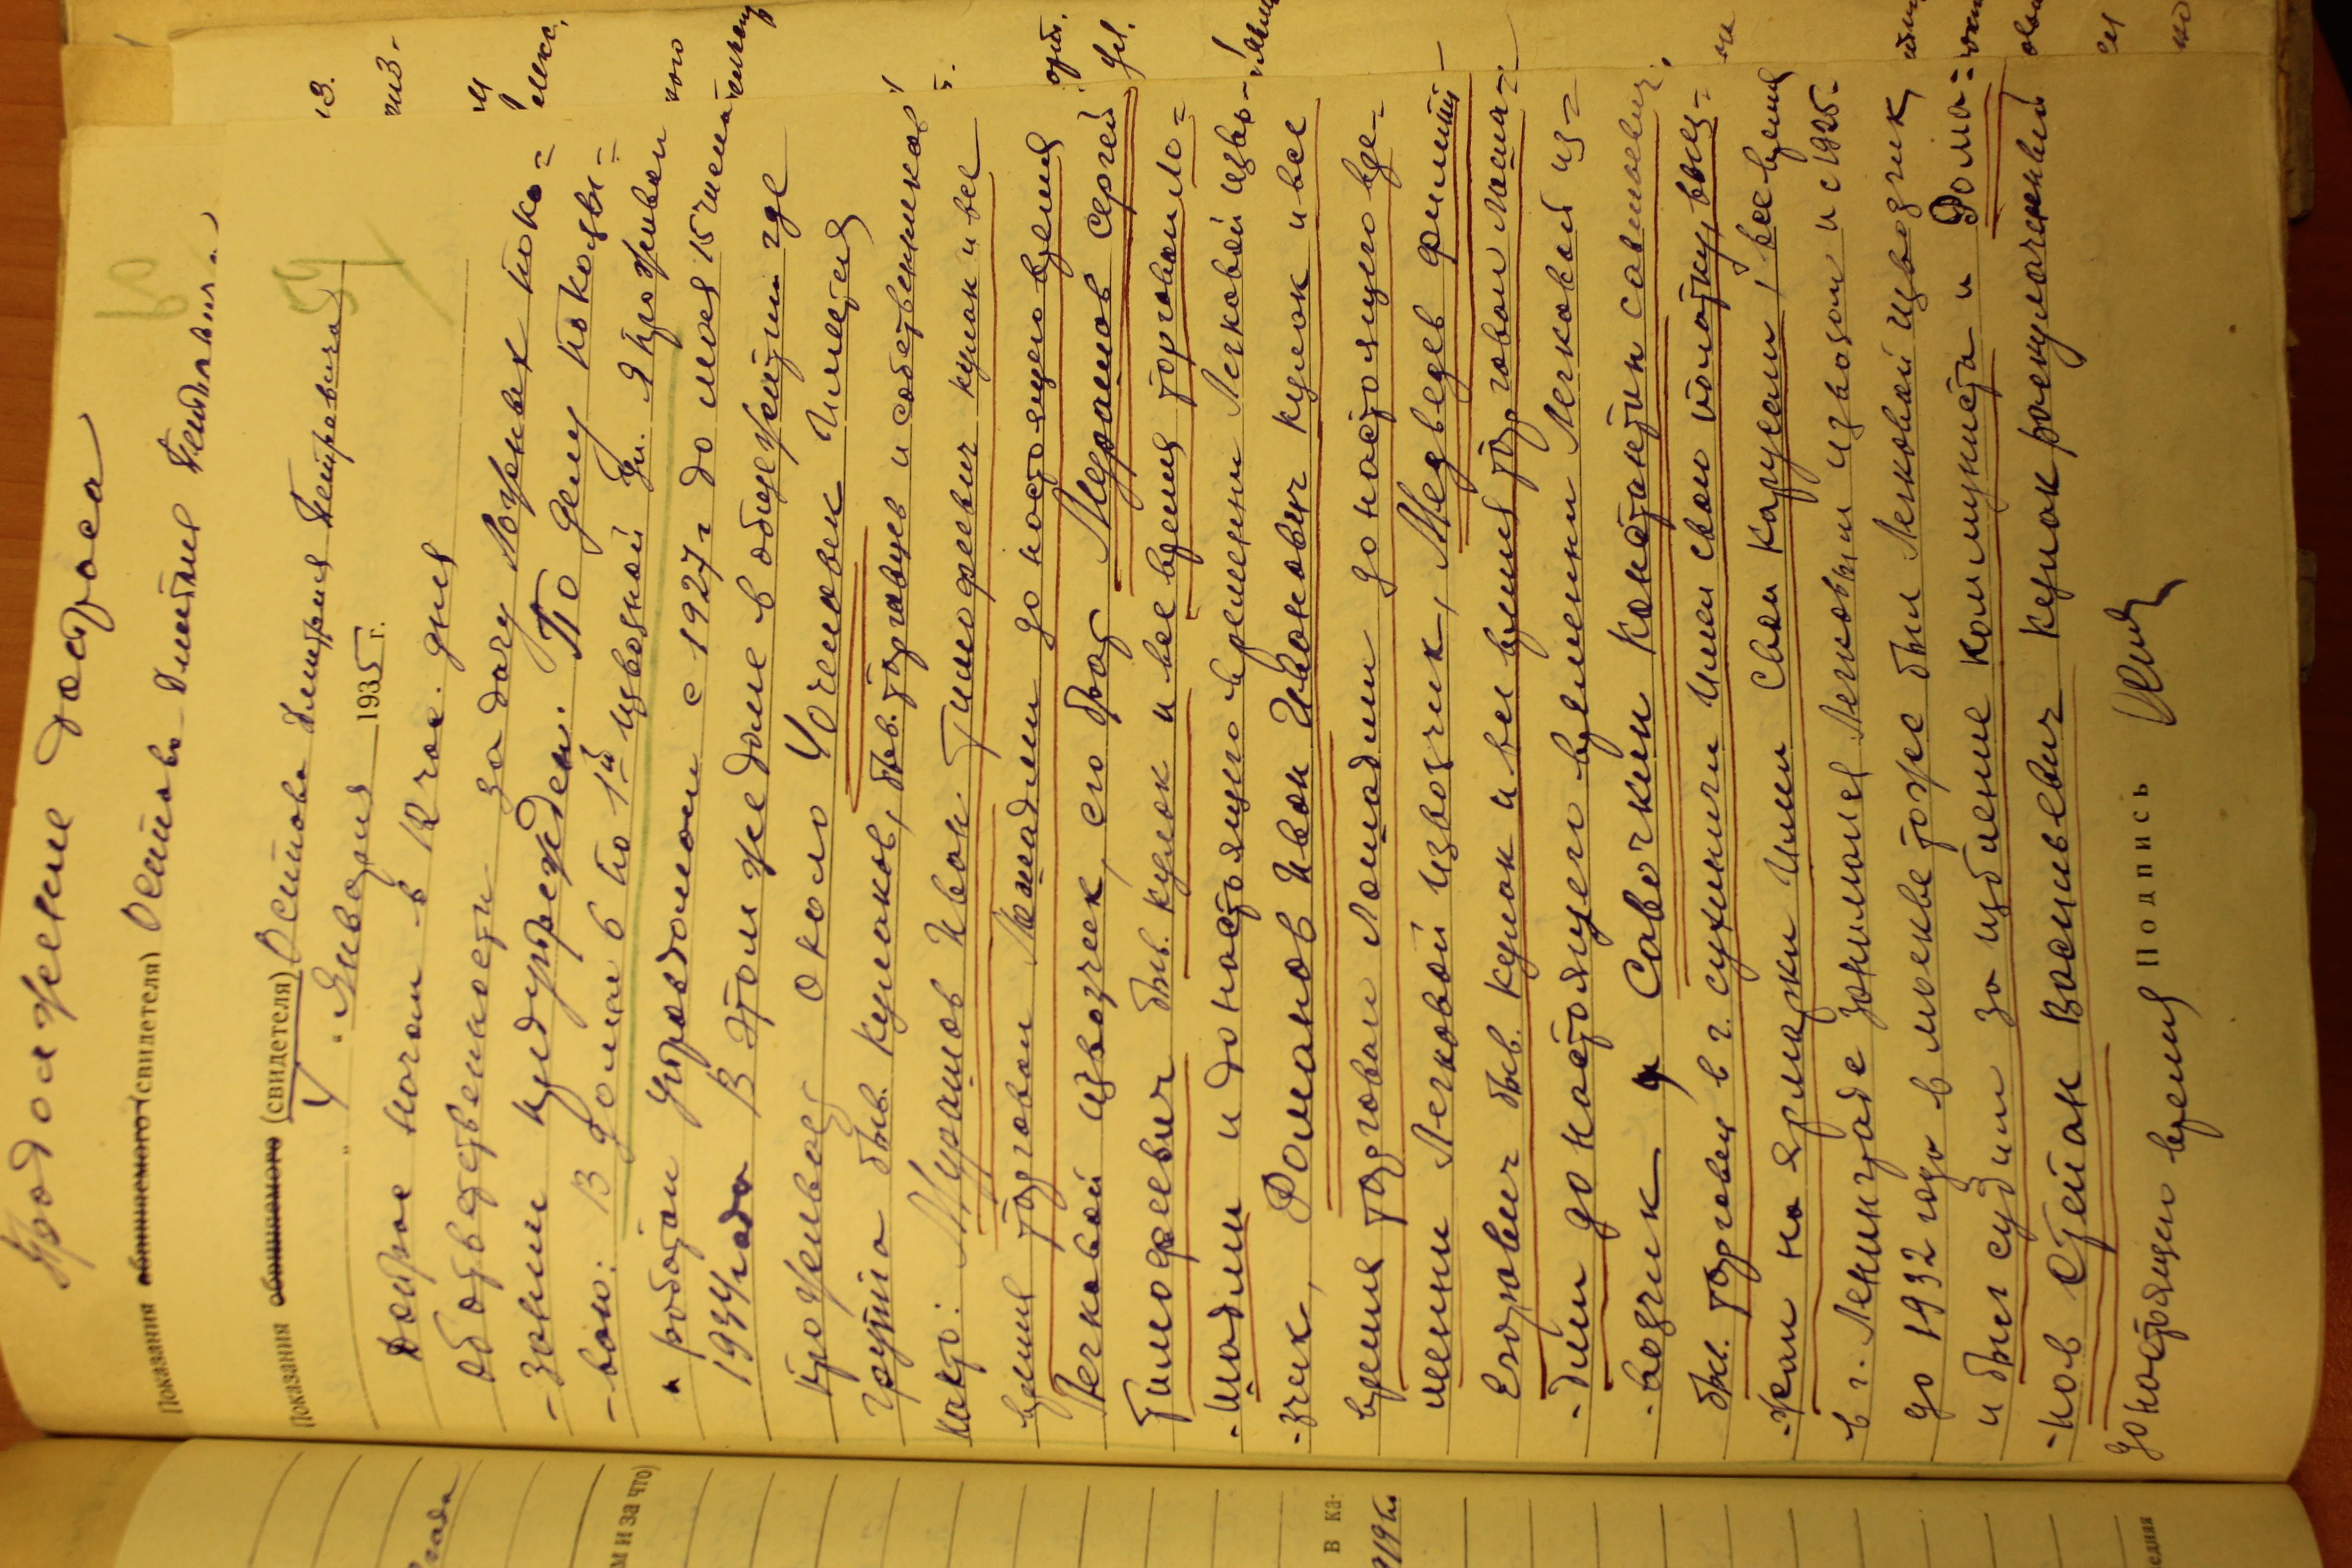 Продолжение допроса
60
Показания обвиняемого (свидетеля) Осипова Дмитрия
59
Показания обвиняемого (свидетеля) Осипова Дмитрия Петровича
"4" января 1935 г.
Допрос начат в 12 час. дня
Об ответственности за дачу ложных пока=
-заний предупрежден. По делу показы=
-ваю: В доме 6 по 1й извозной ул. я проживаю
и работаю управдомом с 1927 г до моея 15 числа
1934 года В этом же доме в общежитии где
проживает около 40 человек имеется
группа быв. кулаков, быв. торговцев и собственников
как то: Мурашов Иван Тимофеевич кулак и все
время торговал лошадми до настоящего время
Легковой извозчек, его брат Мурашов Сергей
Тимофеевич быв. кулак и все время торговал ло=
-шадми и до настоящего времени Легковой изво-
-зчик, Романов Иван Иванович кулак и все
время торговал лошадми до настоящего вре=
мени Легковой извозчик, Медведев
Егорович быв. кулак и все время торговал лоша=
-дми до настоящего времени Легковой из=
-возчик, Савочкин Константин Савельевич,
быв. торговец в г. сухиничи имел свою палатку, выез=
-жал на ярмарки имел свои карусели, все время
в г. Ленинграде занимался Легковым извозом и с 1925-
до 1932 года в москве тоже был Легковой извозчик
и был судим за избиение коммуниста и Рома=
-нов Степан Васильевич кулак раскулаченный
до настоящего время Подпись
13.
в ка-
м и за что)